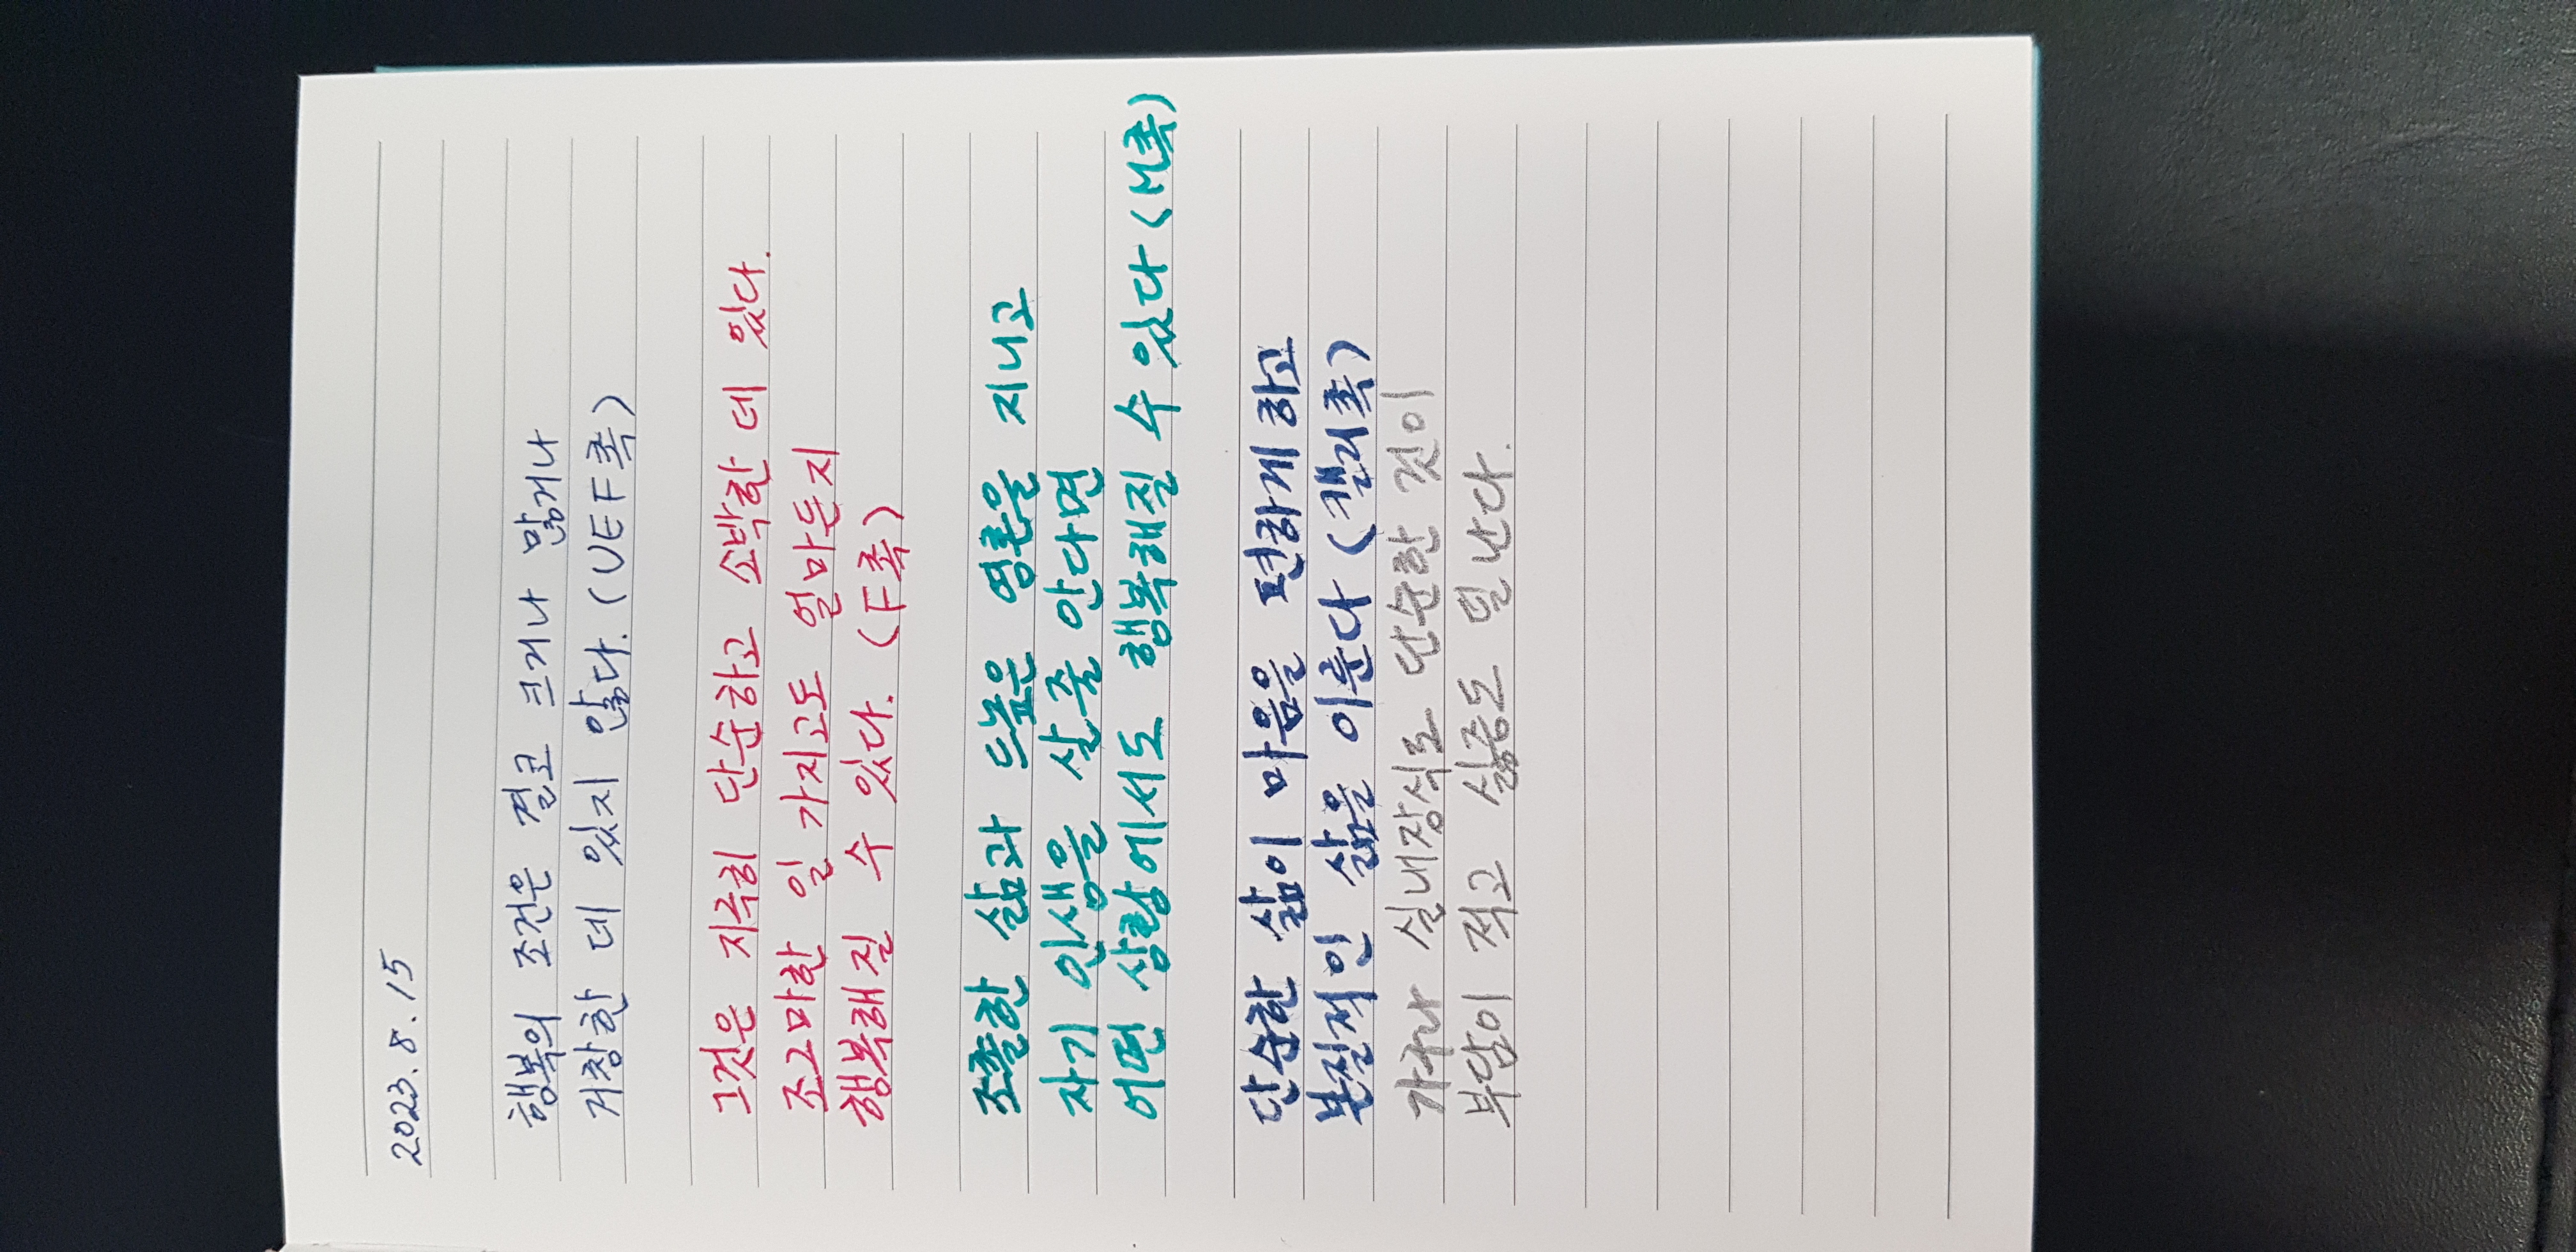 2023. 8. 15
행복의 조건은 결코 크거나 많거나
거창한 데 있지 않다. (UEF촉)
그것은 지극히 단순하고 소박한 데 있다.
조그마한 일 가지고도 얼마든지
행복해질 수 있다. (F촉)
조촐한 삶과 드높은 영혼을 지니고
자기 인생을 살줄 안다면
어떤 상황에서도 행복해질 수 있다 (M촉)
단순한 삶이 마음을 편하게 하고
본질적인 삶을 이룬다 (캘리촉)
가구나 실내장식도 단순한 것이
부담이 적고 싫증도 덜 난다.